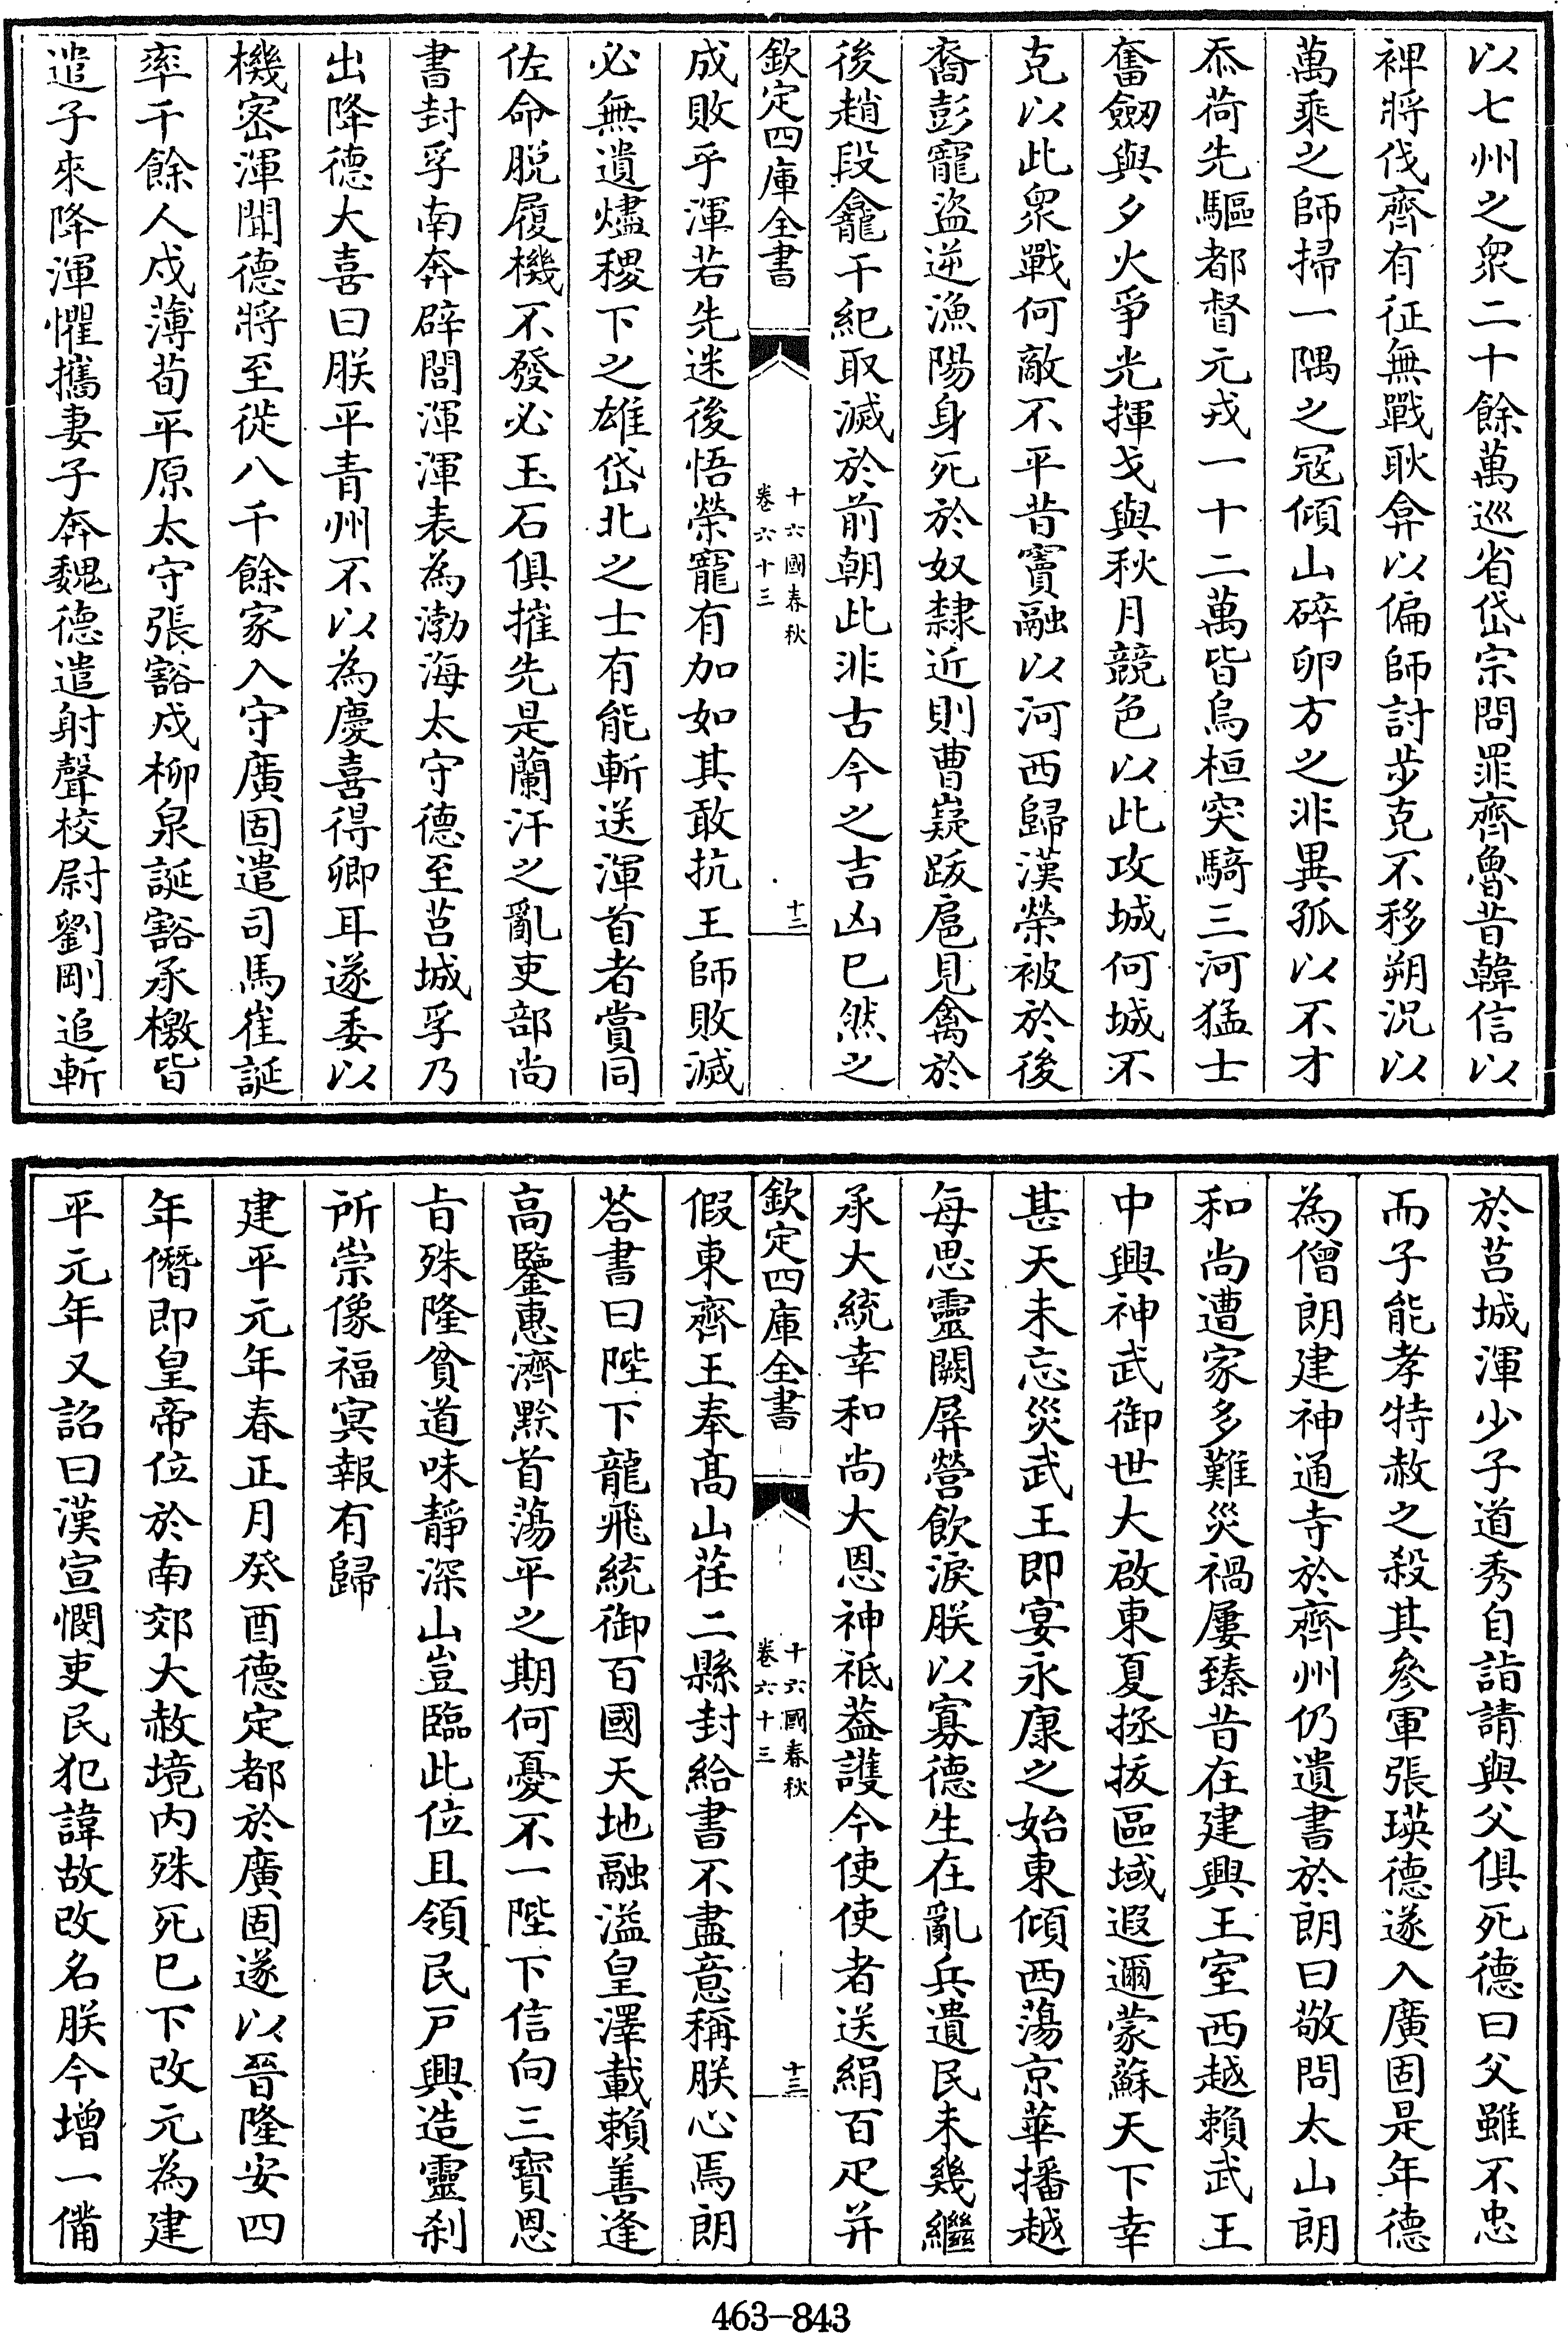 以七州之衆二十餘萬巡省岱宗問罪齊魯昔韓信以
裨將伐齊有征無戰耿弇以偏師討步克不移朔況以
萬乘之師掃一隅之冦傾山碎卵方之非異孤以不才
忝荷先驅都督元戎一十二萬皆烏桓突騎三河猛士
奮劒與夕火爭光揮戈與秋月競色以此攻城何城不
克以此衆戰何敵不平昔竇融以河西歸漢榮被於後
裔彭寵盜逆漁陽身死於奴隸近則曹嶷跋扈見禽於
後趙段龕干紀取滅於前朝此非古今之吉凶已然之
欽定四庫全書
十六國春秋
卷六十三
十二
成敗乎渾若先迷後悟榮寵有加如其敢抗王師敗滅
必無遺燼稷下之雄岱北之士有能斬送渾首者賞同
佐命脱履機不發必玉石俱摧先是蘭汗之亂吏部尚
書封孚南奔辟閭渾渾表為渤海太守德至莒城孚乃
出降德大喜曰朕平青州不以為慶喜得卿耳遂委以
機密渾聞德將至徙八千餘家入守廣固遣司馬崔誕
率千餘人戍薄荀平原太守張豁戍柳泉誕豁承檄皆
遣子來降渾懼攜妻子奔魏德遣射聲校尉劉剛追斬
於莒城渾少子道秀自詣請與父俱死德曰父雖不忠
而子能孝特赦之殺其參軍張瑛德遂入廣固是年德
為僧朗建神通寺於齊州仍遺書於朗曰敬問太山朗
和尚遭家多難災禍屢臻昔在建興王室西越賴武王
中興神武御世大啟東夏拯拔區域遐邇蒙蘇天下幸
甚天未忘災武王即宴永康之始東傾西蕩京華播越
每思靈闕屏營飲淚朕以寡德生在亂兵遺民未幾繼
承大統幸和尚大恩神祇葢護今使使者送絹百疋并
欽定四庫全書
十六國春秋
卷六十三
十三
假東齊王奉高山茌二縣封給書不盡意稱朕心焉朗
荅書曰陛下龍飛統御百國天地融溢皇澤載賴善逢
高鑒惠濟黔首蕩平之期何憂不一陛下信向三寶恩
旨殊隆貧道味靜深山豈臨此位且領民户興造靈刹
所崇像福冥報有歸
建平元年春正月癸酉德定都於廣固遂以晉隆安四
年僭即皇帝位於南郊大赦境内殊死已下改元為建
平元年又詔曰漢宣憫吏民犯諱故改名朕今增一備
463-843